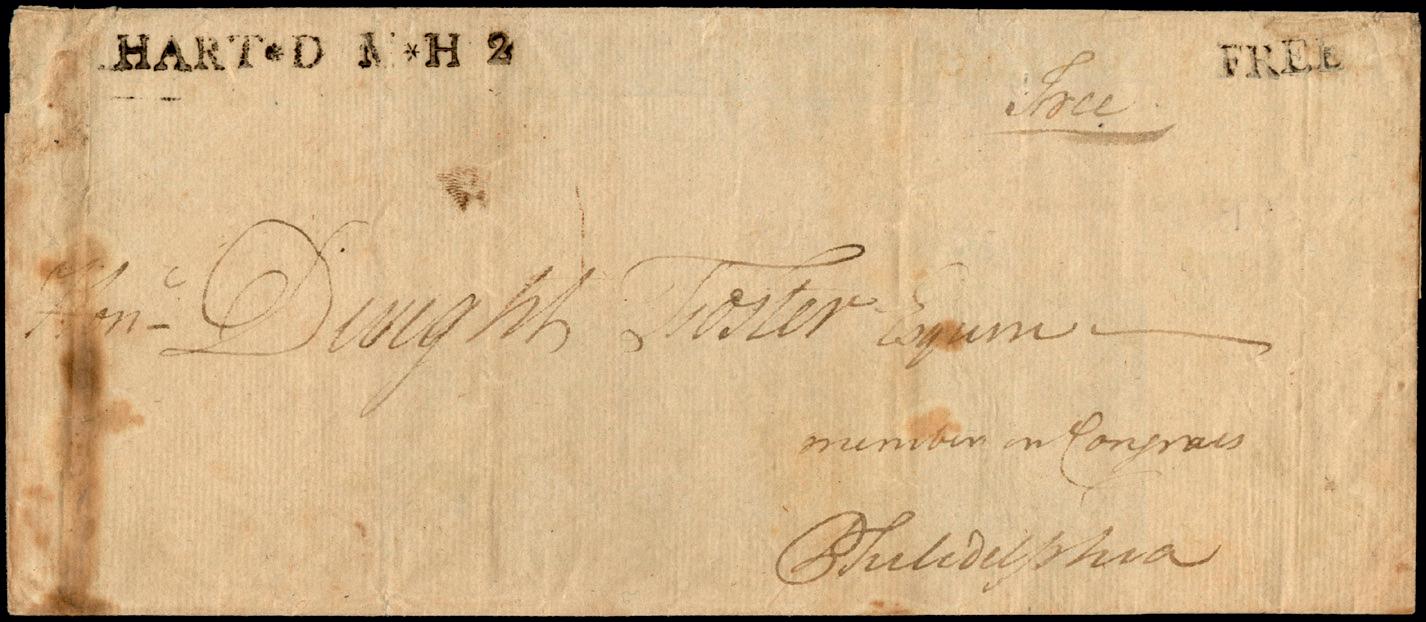 HART*D M*H 2
FREE
Free
Honᵉ Dwight Foster Esquire
member in Congress
Philidelphia